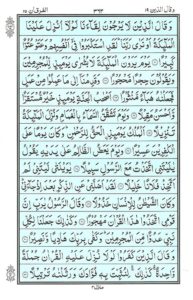 وقال الذين ١٩ ٣٦٣ الفرقان ٢٥
وَقَالَ الَّذِينَ لَا يَرْجُونَ لِقَاءَنَا لَوْلَا أُنزِلَ عَلَيْنَا
الْمَلٰٓئِكَةُ أَوْ نَرٰى رَبَّنَا لَقَدِ اسْتَكْبَرُوا فِي أَنفُسِهِمْ وَعَتَوْ عُتُوًّا
كَبِيرًا ۝ يَوْمَ يَرَوْنَ الْمَلٰٓئِكَةَ لَا بُشْرٰى يَوْمَئِذٍ لِّلْمُجْرِمِينَ
وَيَقُولُونَ حِجْرًا مَّحْجُورًا ۝ وَقَدِمْنَا إِلٰى مَا عَمِلُوا مِنْ عَمَلٍ
فَجَعَلْنٰهُ هَبَاءً مَّنثُورًا ۝ أَصْحٰبُ الْجَنَّةِ يَوْمَئِذٍ خَيْرٌ مُّسْتَقَرًّا
وَأَحْسَنُ مَقِيلًا ۝ وَيَوْمَ تَشَقَّقُ السَّمَاءُ بِالْغَمَامِ وَنُزِّلَ الْمَلٰٓئِكَةُ
تَنزِيلًا ۝ الْمُلْكُ يَوْمَئِذٍ الْحَقُّ لِلرَّحْمٰنِ وَكَانَ يَوْمًا عَلَى
الْكٰفِرِينَ عَسِيرًا ۝ وَيَوْمَ يَعَضُّ الظَّالِمُ عَلٰى يَدَيْهِ يَقُولُ
يٰلَيْتَنِي اتَّخَذْتُ مَعَ الرَّسُولِ سَبِيلًا ۝ يٰوَيْلَتٰى لَيْتَنِي لَمْ
أَتَّخِذْ فُلَانًا خَلِيلًا ۝ لَقَدْ أَضَلَّنِي عَنِ الذِّكْرِ بَعْدَ إِذْ جَاءَنِي
وَكَانَ الشَّيْطٰنُ لِلْإِنسَانِ خَذُولًا ۝ وَقَالَ الرَّسُولُ يٰرَبِّ إِنَّ
قَوْمِي اتَّخَذُوا هٰذَا الْقُرْاٰنَ مَهْجُورًا ۝ وَكَذٰلِكَ جَعَلْنَا لِكُلِّ
نَبِيٍّ عَدُوًّا مِّنَ الْمُجْرِمِينَ وَكَفٰى بِرَبِّكَ هَادِيًا وَّنَصِيرًا ۝
وَقَالَ الَّذِينَ كَفَرُوا لَوْلَا نُزِّلَ عَلَيْهِ الْقُرْاٰنُ جُمْلَةً
وَّاحِدَةً كَذٰلِكَ لِنُثَبِّتَ بِهِ فُؤَادَكَ وَرَتَّلْنٰهُ تَرْتِيلًا ۝
منزل ٤